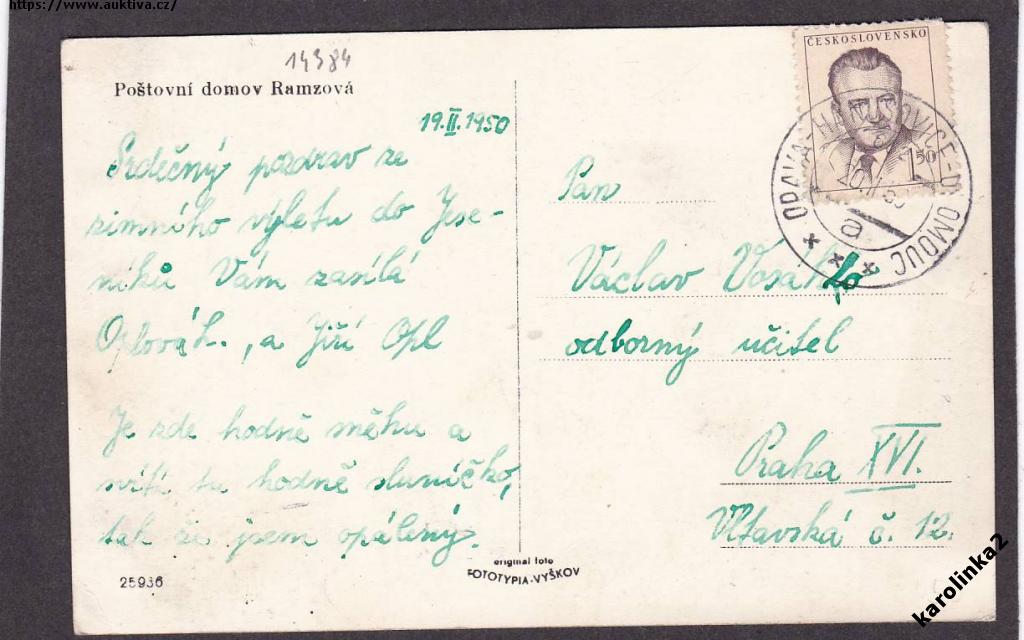 https://www.auktiva.cz/
14984
Poštovní domov Ramzová
19.II.1950
Srdečný pozdrav ze
zimního výletu do Jese-
níků Vám zasílá
Oplová h., a Jiří Opl
Je zde hodně sněhu a
svítí tu hodně sluníčko,
tak že jsem opálený.
25936
original foto
FOTOTYPIA-VYŠKOV
ČESKOSLOVENSKO
1 50
OPAVA HANUŠOVICE-OLOMOUC
a
Pan
Václav Vosáhlo
odborný učitel
Praha XVI.
Vltavská č. 12.
karolinka2